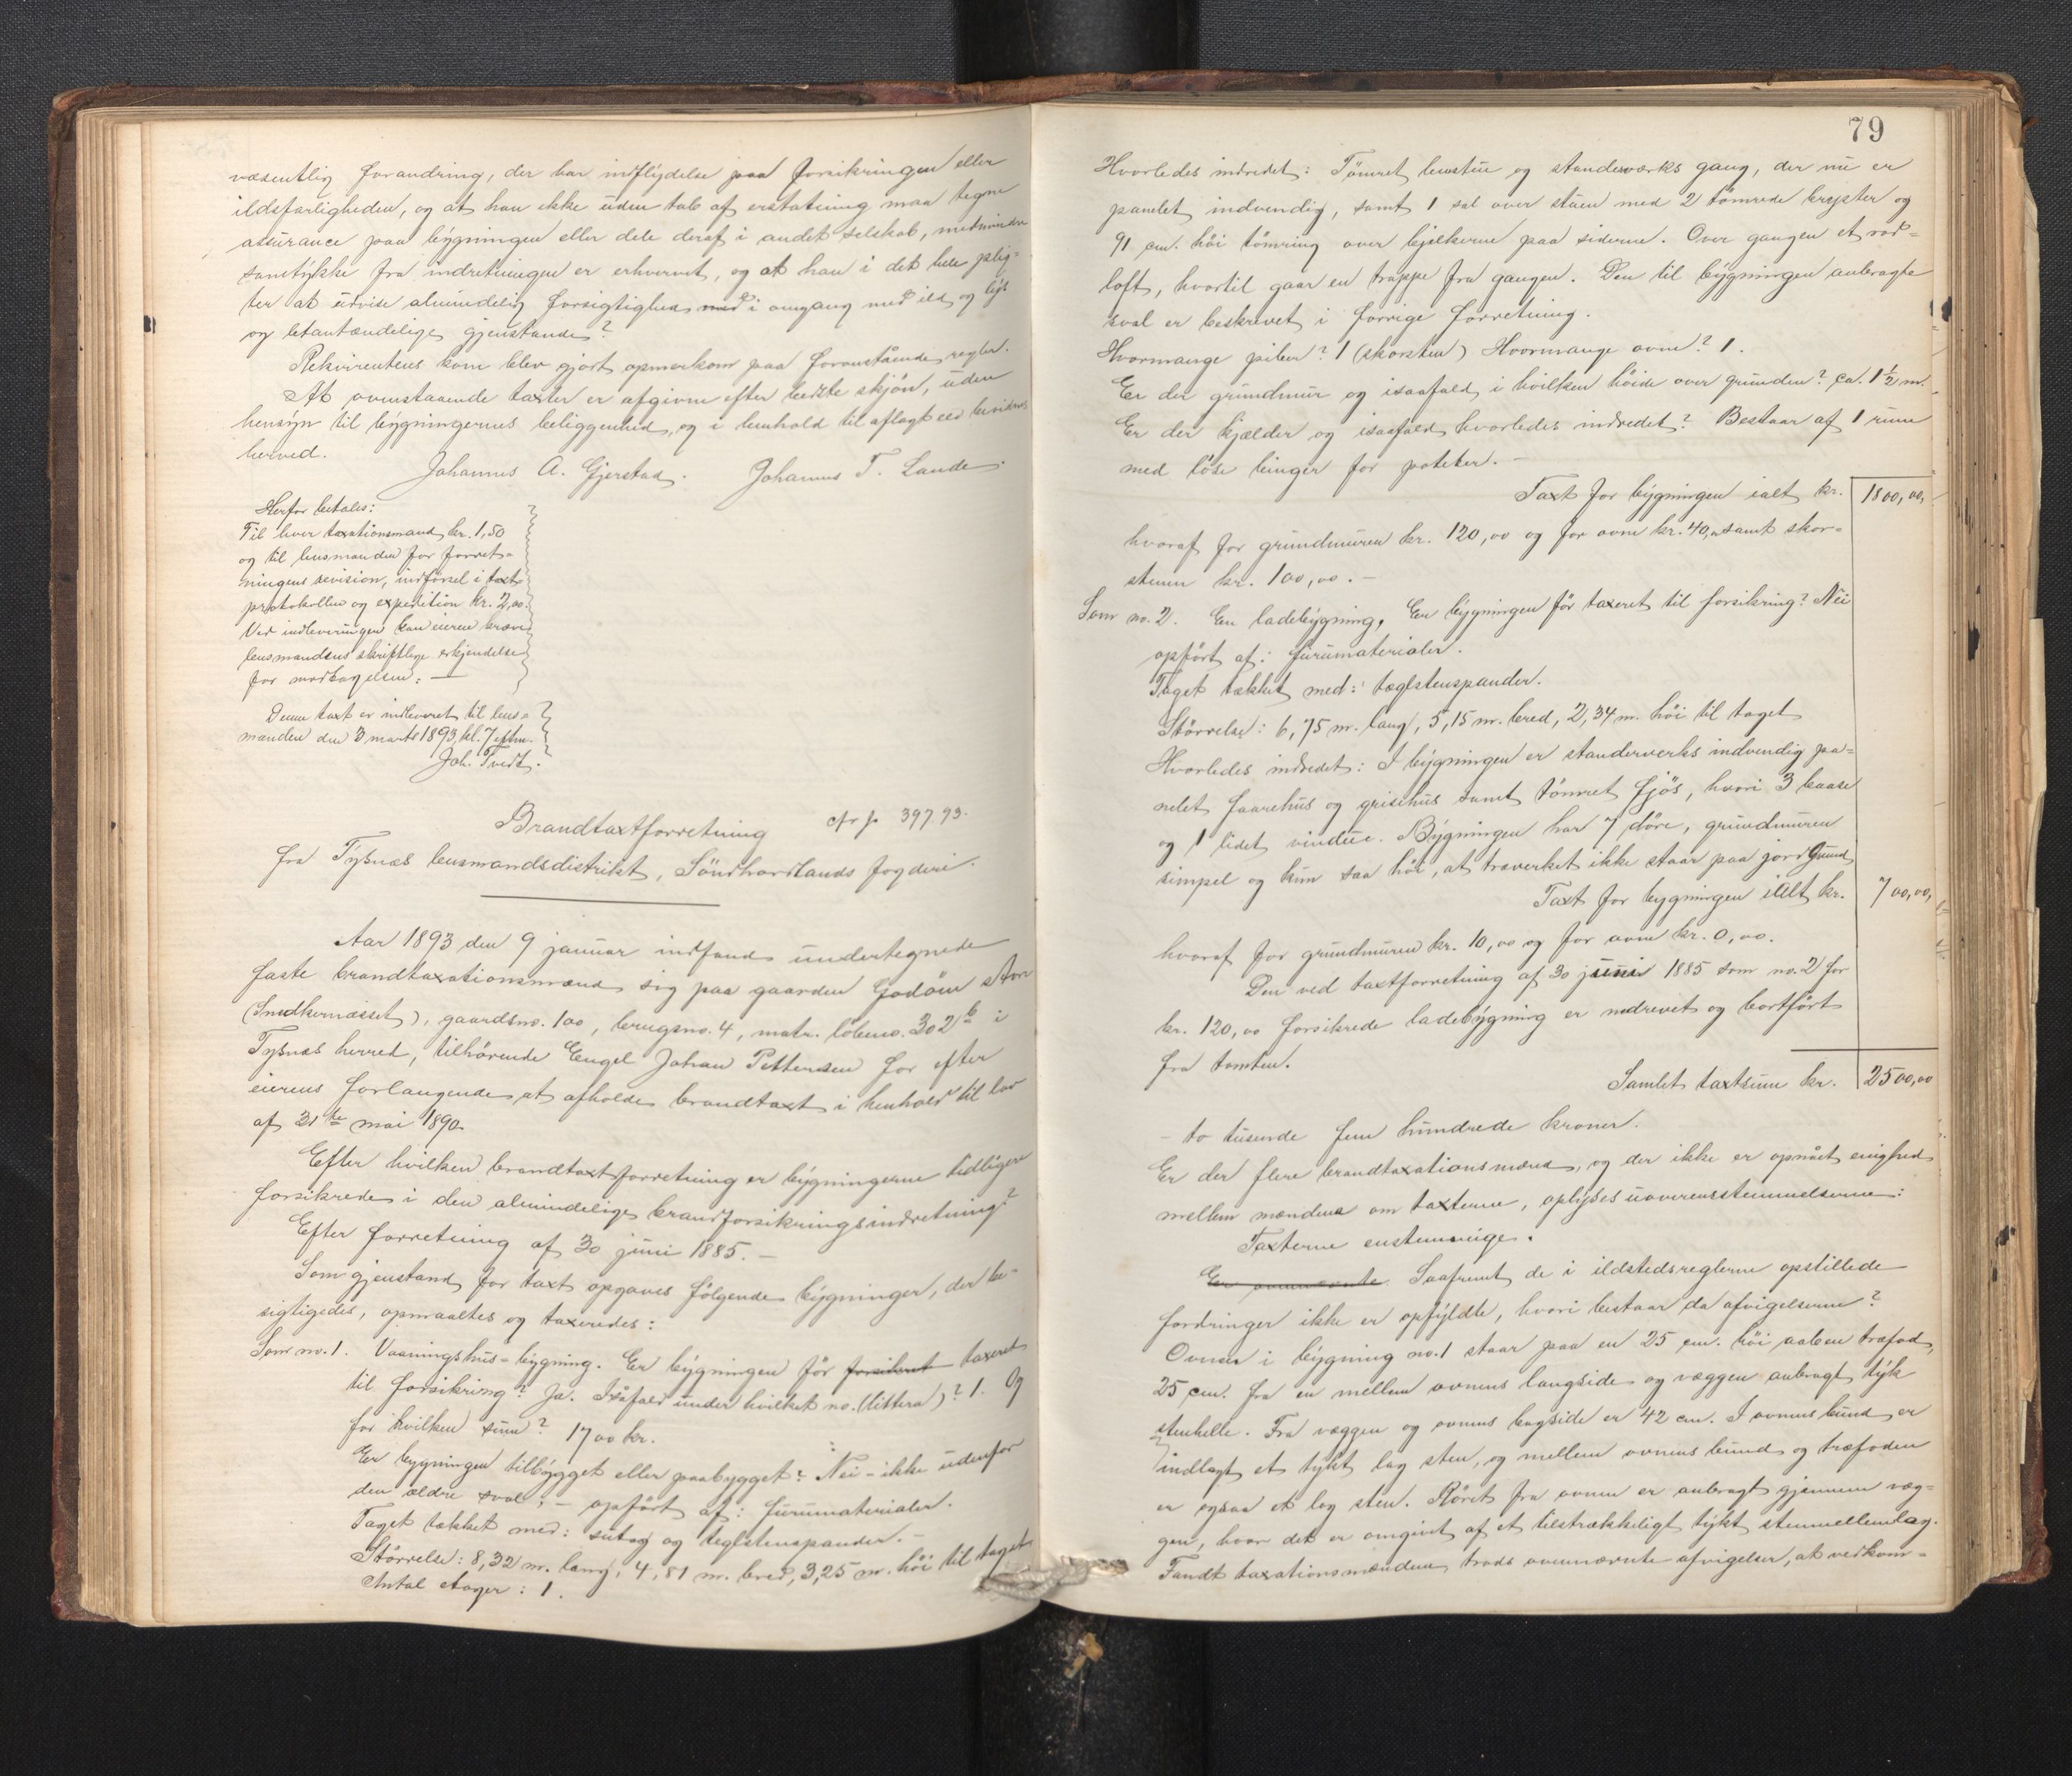 væsentlig forandring, der har indflydelse paa forsikringen eller
ildsfarligheden, og at han ikke uden tab af erstatning maa tegne
assurance paa bygningen eller dele deraf i andet selskab, medmindre
samtykke fra indretningen er erhvervet, og at han i det hele plig-
ter at udvise almindelig forsigtighed med i omgang med ild og lys
og letantændelige gjenstande?
Rekvirentens kone blev gjort opmerksom paa foranstående regler.
At ovenstaaende taxter er afgivne efter bedste skjön, uden
hensyn til bygningernes beliggenhed, og i henhold til aflagt eed bevidnes
herved.
Johannes A. Gjerstad. Johannes T. Lande.
Herfor betales:
Til hver taxationsmand kr. 1,50
og til lensmanden for forret-
ningens revision, indförsel i taxt-
protokollen og expedition kr. 2,00.
Ved indleveringen kan eieren kræve
lensmandens skriftlige erkjendelse
for modtagelsen. —
Denne taxt er indleveret til lens-
manden den 3 marts 1893 kl. 7 eftm.
Joh. Tvedt.
Brandtaxtforretning cfr p. 397.93.
fra Tysnæs lensmandsdistrikt, Söndhordlands fogderi.
Aar 1893 den 9 januar indfandt undertegnede
faste brandtaxationsmænd sig paa gaarden Godöen store
(Snedkernæsset), gaardsno. 100, brugsno. 4, matr. löbeno. 302 b i
Tysnæs herred, tilhörende Engel Johan Pettersen for efter
eierens forlangende at afholde brandtaxt i henhold til lov
af 31te mai 1890.
Efter hvilken brandtaxtforretning er bygningerne tidligere
forsikrede i den almindelige brandforsikringsindretning?
Efter forretning af 30 juni 1885. —
Som gjenstand for taxt opgaves fölgende bygninger, der be-
sigtigedes, opmaaltes og taxeredes:
Som no. 1. Vaaningshus-bygning. Er bygningen för forsikret taxeret
til forsikring? Ja. Isåfald under hvilket no. (littera)? 1. Og
for hvilken sum? 1700 kr.
Er bygningen tilbygget eller paabygget? Nei - ikke udenfor
den ældre sval; — opfört af: furumaterialer.
Taget tækket med: sutag og teglstenspander. —
Störrelse: 8,32 m. lang, 4,81 m. bred, 3,25 m. höi til taget
Antal etager: 1.
79
Hvorledes indredet: Tömret levestue og standerværks gang, der nu er
panelet indvendig, samt 1 sal over stuen med 2 tömrede bryster og
91 cm. höi tömring over bjelkerne paa siderne. Over gangen et rod-
loft, hvortil gaar en trappe fra gangen. Den til bygningen anbragte
sval er beskrevet i forrige forretning.
Hvormange piber? 1 (skorsten) Hvormange ovne? 1.
Er der grundmur og isaafald i hvilken höide over grunden? ca. 1½ m.
Er der kjælder og isaafald hvorledes indredet? Bestaar af 1 rum
med löse binger for poteter. —
Taxt for bygningen ialt kr. 1800,00,
hvoraf for grundmuren kr. 120,00 og for ovne kr. 40,00 samt skor-
stenen kr. 100,00. —
Som no. 2. En ladebygning, Er bygningen för taxeret til forsikring? Nei
opfört af: furumaterialer.
Taget tækket med: teglstenspander.
Störrelse: 6,75 m. lang, 5,15 m. bred, 2,34 m. höi til taget
Hvorledes indredet: I bygningen er standerverks indvendig pa-
nelet faarehus og grisehus samt tömret fjös, hvori 3 baase
og 1 lidet vindue. Bygningen har 7 döre, grundmuren
simpel og kun saa höi, at træverket ikke staar paa jordgrund
Taxt for bygningen ialt kr. 700,00,
hvoraf for grundmuren kr. 10,00 og for ovne kr. 0,00.
Den ved taxtforretning af 30 juni 1885 som no. 2 for
kr. 120,00 forsikrede ladebygning er nedrevet og bortfört
fra tomten.
Samlet taxtsum kr. 2500,00
- to tusende fem hundrede kroner.
Er der flere brandtaxationsmænd, og der ikke er opnået enighed
mellem mændene om taxterne, oplyses uoverensstemmelserne:
Taxterne enstemmige.
Saafremt de i ildstedsreglerne opstillede
fordringer ikke er opfyldte, hvori bestaar da afvigelserne?
Ovnen i bygning no. 1 staar paa en 25 cm. höi aaben træfod,
25 cm. fra en mellem ovnens langside og væggen anbragt tyk
stenhelle. Fra væggen og ovnens bagside er 42 cm. I ovnens bund er
indlagt et tykt lag sten, og mellem ovnens bund og træfoden
er ogsaa et lag sten. Röret fra ovnen er anbragt gjennem væg-
gen, hvor det er omgivet af et tilstrækkeligt tykt stenmellemlag.
Fandt taxationsmændene trods ovennævnte afvigelser, at vedkom-